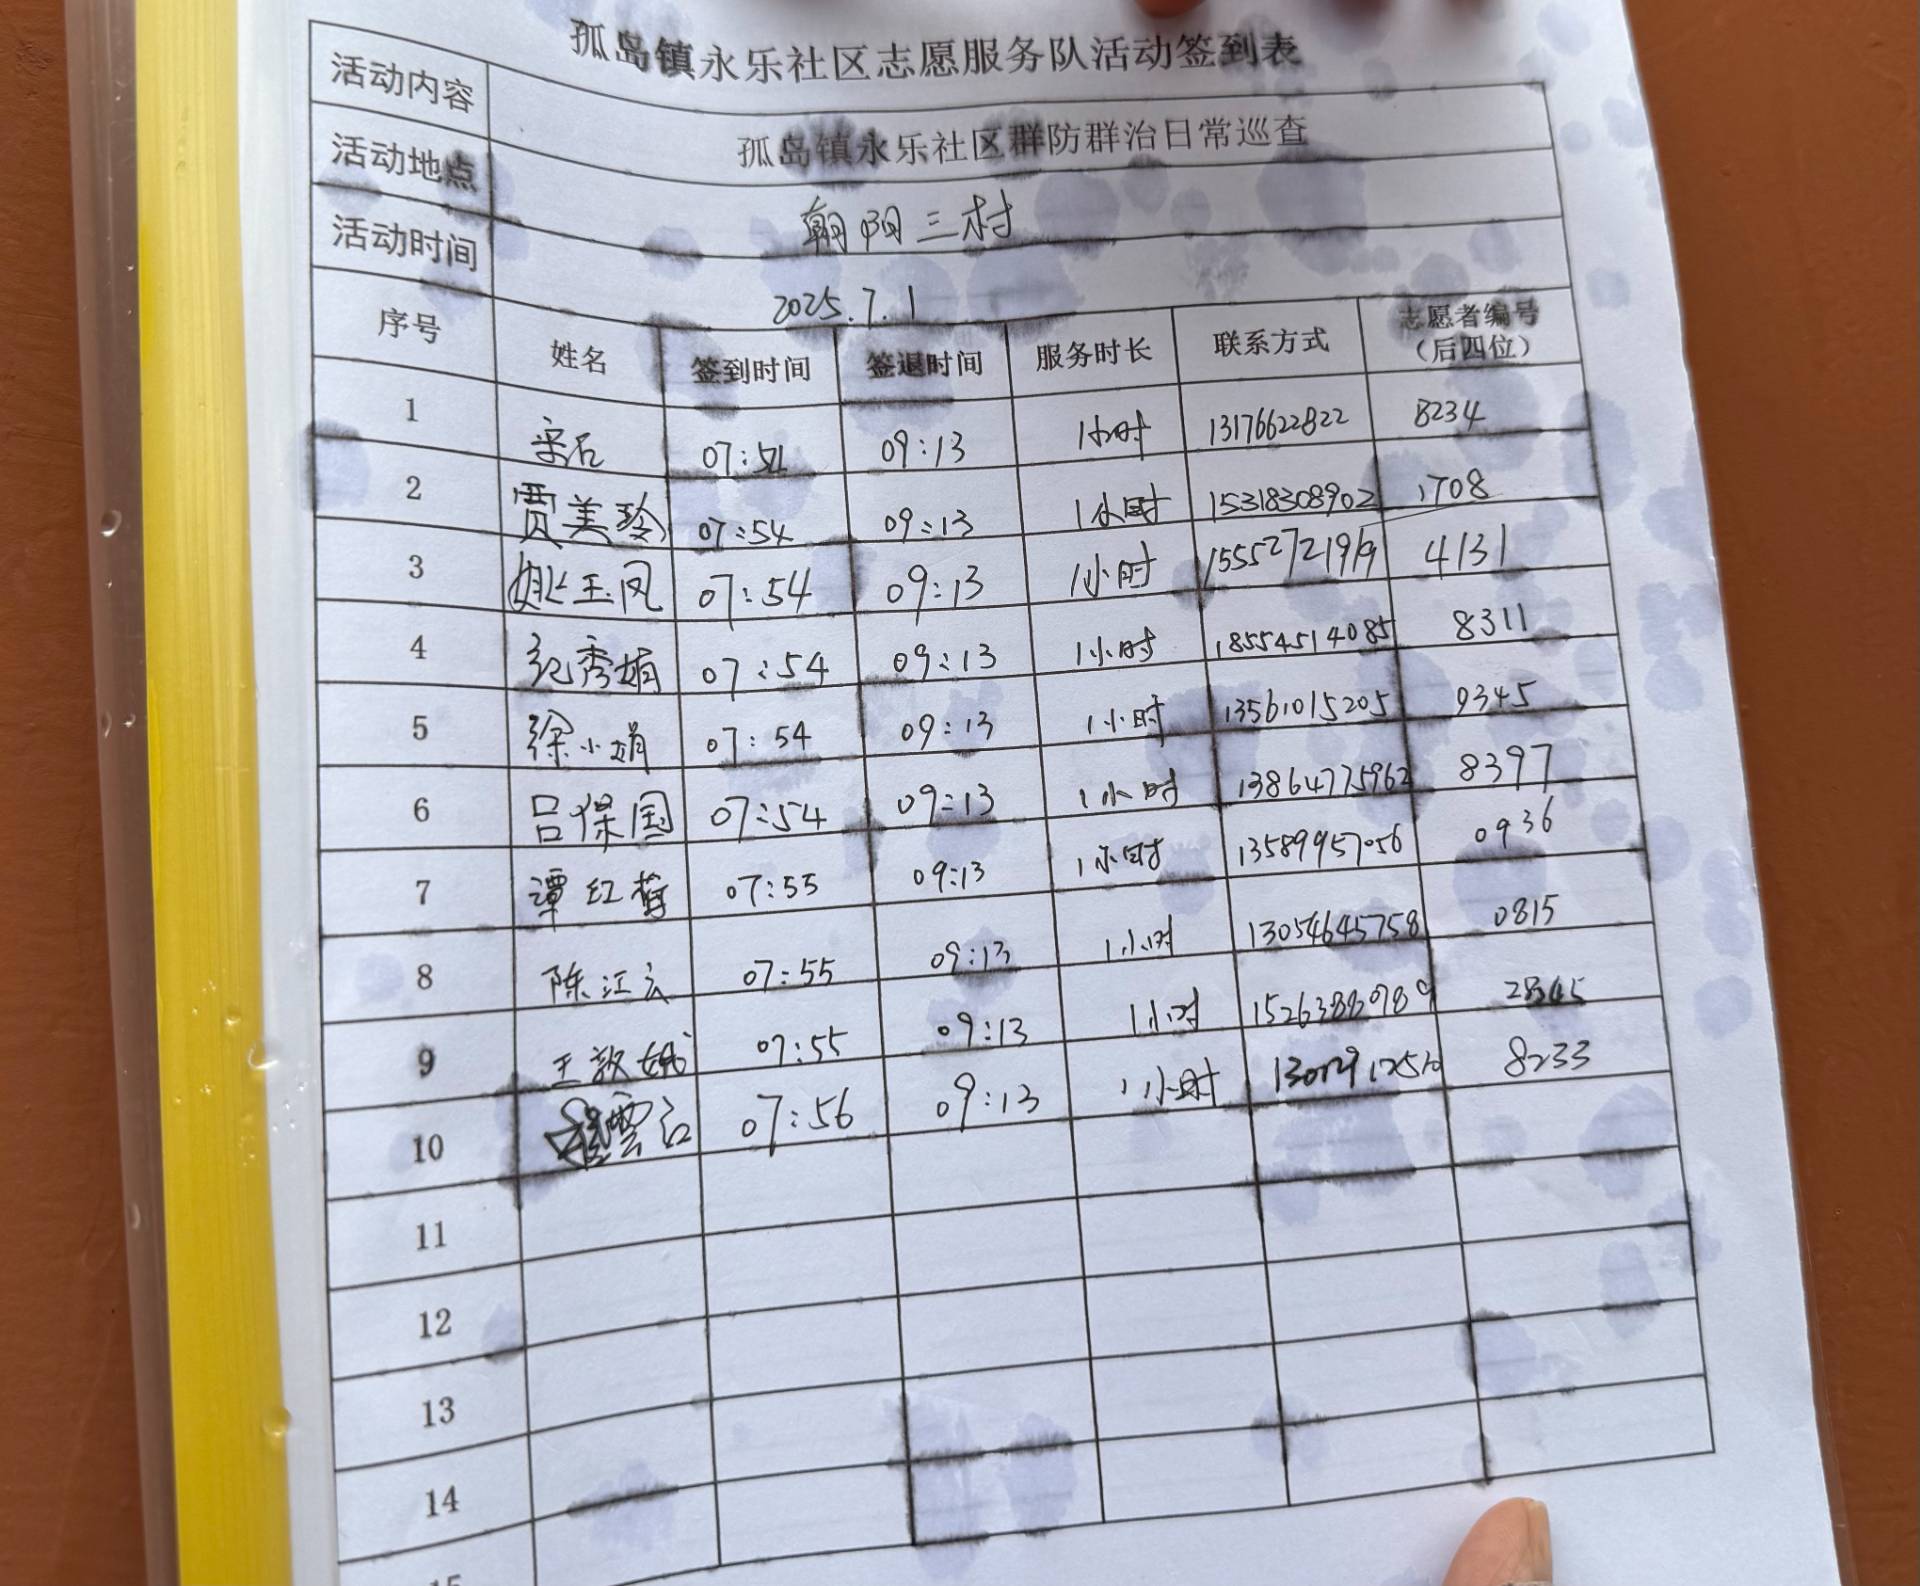 孤岛镇永乐社区志愿服务队活动签到表
活动内容 孤岛镇永乐社区群防群治日常巡查
活动地点 朝阳三村
活动时间 2025.7.1
序号 姓名 签到时间 签退时间 服务时长 联系方式 志愿者编号（后四位）
1 07:54 09:13 1小时 13176622822 8234
2 贾美玲 07:54 09:13 1小时 15318308902 1708
3 姚玉凤 07:54 09:13 1小时 15552721919 4131
4 纪秀娟 07:54 09:13 1小时 18554514085 8311
5 徐小娟 07:54 09:13 1小时 13561015205 9345
6 吕保国 07:54 09:13 1小时 13864775962 8397
7 谭红梅 07:55 09:13 1小时 13589957056 0936
8 陈江云 07:55 09:13 1小时 13054645758 0815
9 07:55 09:13 1小时 15263880789
10 07:56 09:13 1小时 8233
11
12
13
14
15